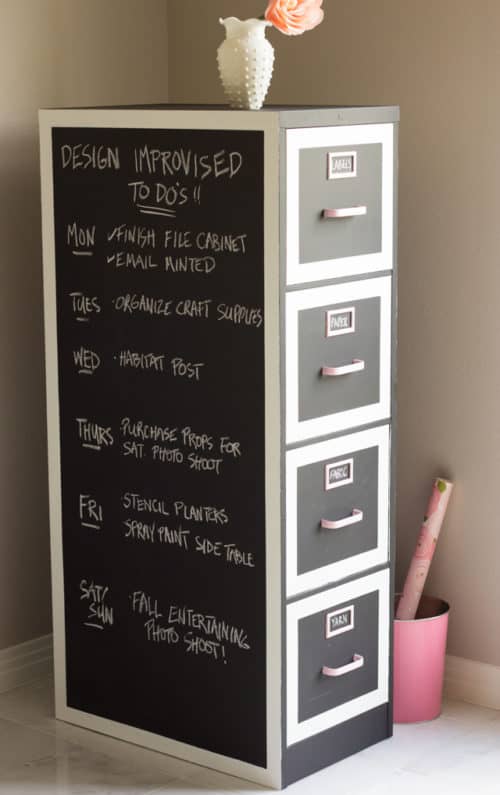 DESIGN IMPROVISED
TO DO'S !!
MON ✓FINISH FILE CABINET
✓EMAIL MINTED
TUES ·ORGANIZE CRAFT SUPPLIES
WED ·HABITAT POST
THURS ·PURCHASE PROPS FOR
SAT. PHOTO SHOOT
FRI STENCIL PLANTERS
SPRAY PAINT SIDE TABLE
SAT/
SUN ·FALL ENTERTAINING
PHOTO SHOOT!
LABELS
PAPER
FABRIC
YARN